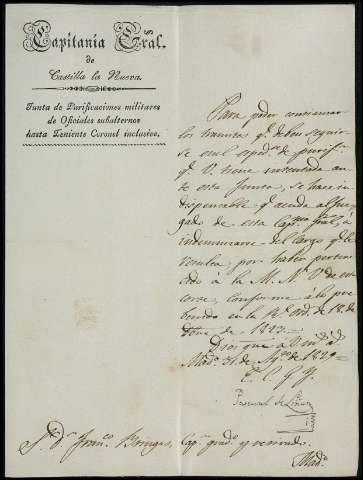 Capitanía Gral.
de
Castilla la Nueva.
Junta de Purificaciones militares
de Oficiales subalternos
hasta Teniente Coronel inclusive.
Para poder continuar
los tramites q.e deben seguir
se en el esped.te de purif.n
q.e V. tiene instaurada an
te esta Junta, se hace in
dispensable q.e acuda al Juz
gado de esta Cap.nia Gral, á
indemnizarse del cargo q.e le
resulta, por haber perten
cido á la M. N. V. de
conforme á lo pre
benido en la R.l ord. de 18. de
de 1823.
Dios gue á V. m.s a.s
Mad.d 31 de Ag.to de 1829
E. C. G. Y.
Pascual de Liñan
S.r D.n Fran.co Cap.n grad.o y retirado.
Mad.d